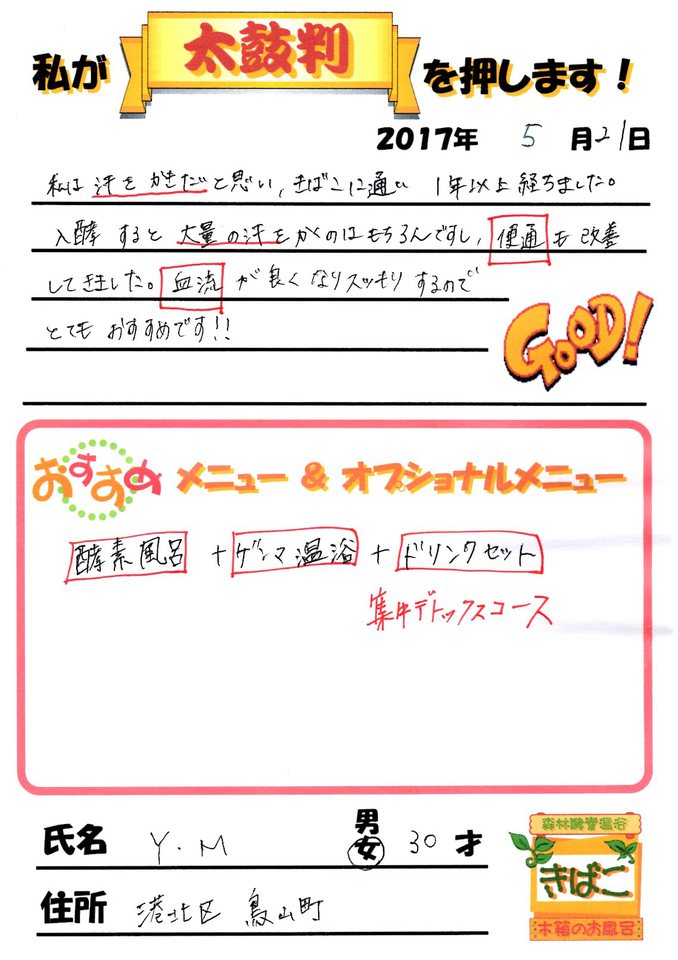 私が 太鼓判 を押します！
2017年 5 月21日
私は汗をかきだと思い、きばこに通い 1年以上経ちました。
入酵すると大量の汗をかくのはもちろんですし、便通も改善
してきました。血流が良くなりスッキリするので
とてもおすすめです!!
GOOD!
おすすめ メニュー & オプショナルメニュー
酵素風呂 + ゲルマ温浴 + ドリンクセット
集中デトックスコース
氏名 Y.M 男 女 30 才
住所 港北区 鳥山町
森林酵素温浴
きばこ
木箱のお風呂